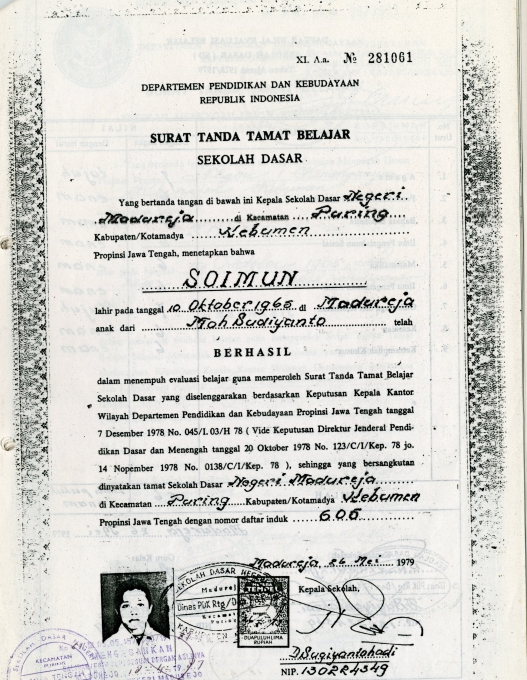 XI. A.a. № 281061
DEPARTEMEN PENDIDIKAN DAN KEBUDAYAAN
REPUBLIK INDONESIA
SURAT TANDA TAMAT BELAJAR
SEKOLAH DASAR
Yang bertanda tangan di bawah ini Kepala Sekolah Dasar Negeri
Madureja di Kecamatan Puring
Kabupaten/Kotamadya Kebumen
Propinsi Jawa Tengah, menetapkan bahwa
SOIMUN
lahir pada tanggal 10 Oktober 1965 di Madureja
anak dari Moh Sudiyanto telah
BERHASIL
dalam menempuh evaluasi belajar guna memperoleh Surat Tanda Tamat Belajar
Sekolah Dasar yang diselenggarakan berdasarkan Keputusan Kepala Kantor
Wilayah Departemen Pendidikan dan Kebudayaan Propinsi Jawa Tengah tanggal
7 Desember 1978 No. 045/I.03/H 78 ( Vide Keputusan Direktur Jenderal Pendi-
dikan Dasar dan Menengah tanggal 20 Oktober 1978 No. 123/C/I/Kep. 78 jo.
14 Nopember 1978 No. 0138/C/I/Kep. 78 ), sehingga yang bersangkutan
dinyatakan tamat Sekolah Dasar Negeri Madureja
di Kecamatan Puring Kabupaten/Kotamadya Kebumen
Propinsi Jawa Tengah dengan nomor daftar induk 606
Madureja, 26 Mei 1979
Kepala Sekolah,
SEKOLAH DASAR NEGERI
Madureja
Dinas PDK
TEMPEL
DUAPULUHLIMA
RUPIAH
D Sugiyantohadi
NIP. 130224349
KECAMATAN